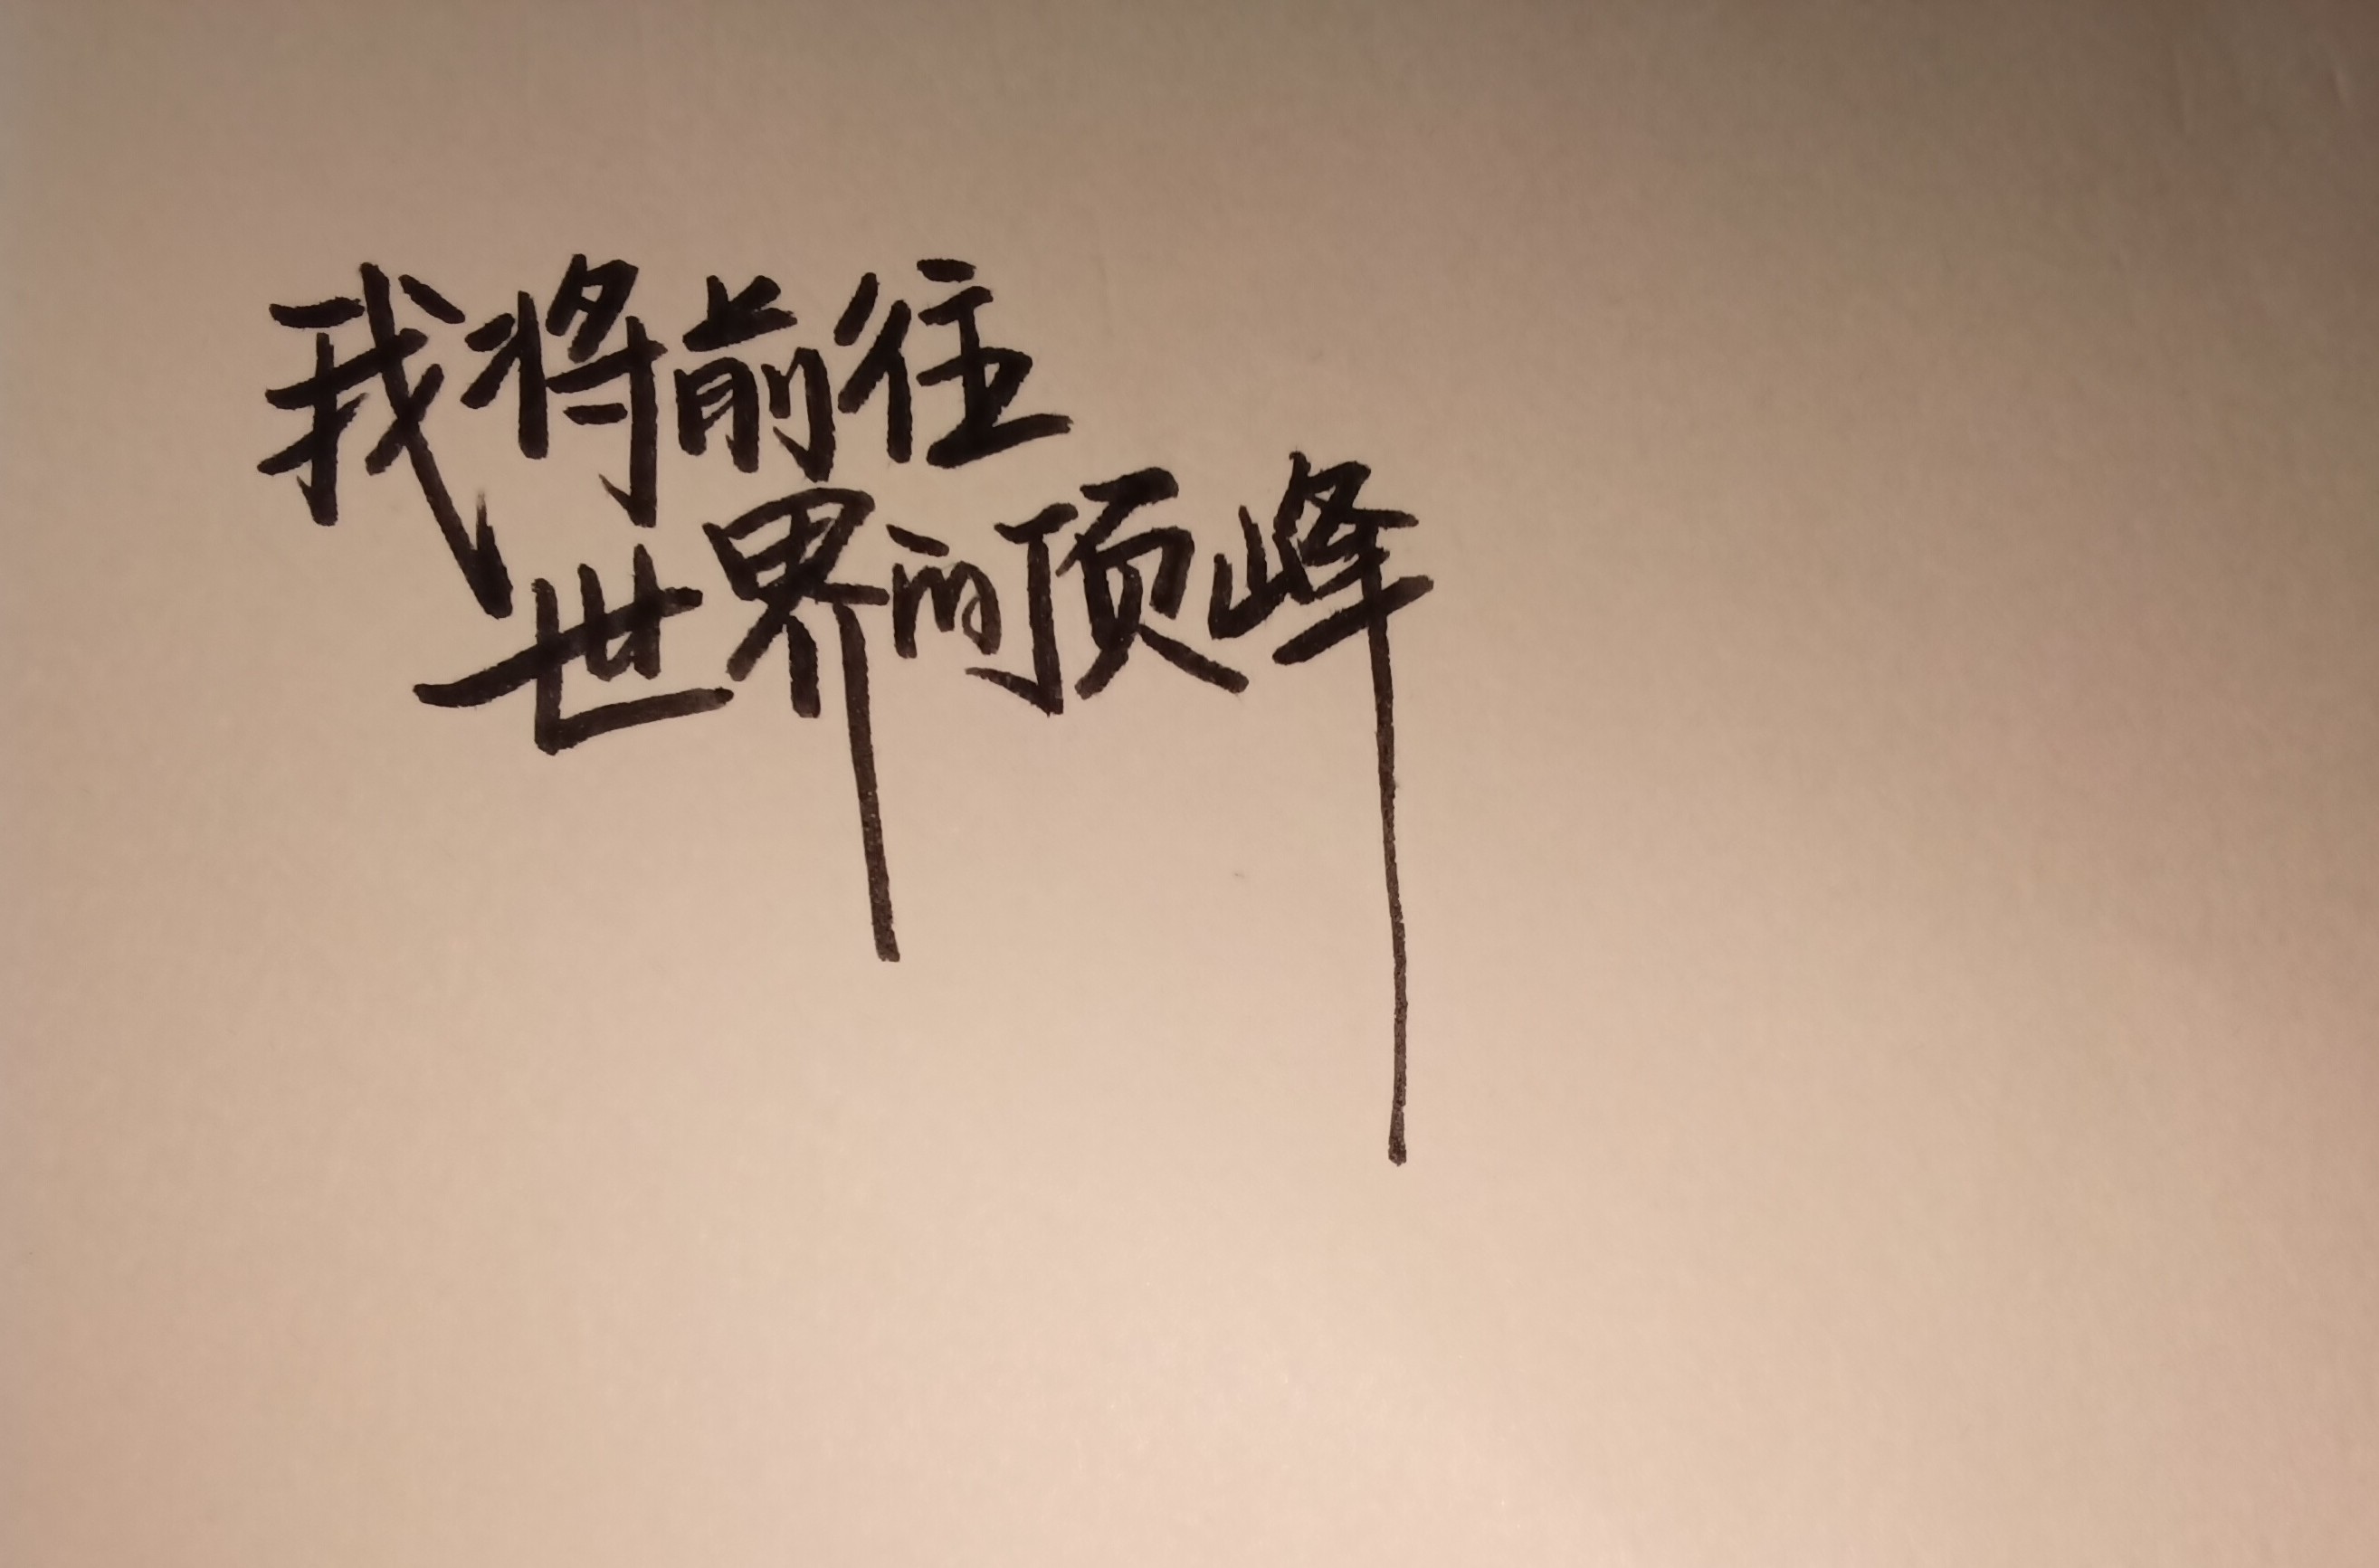 我将前往
世界的顶峰